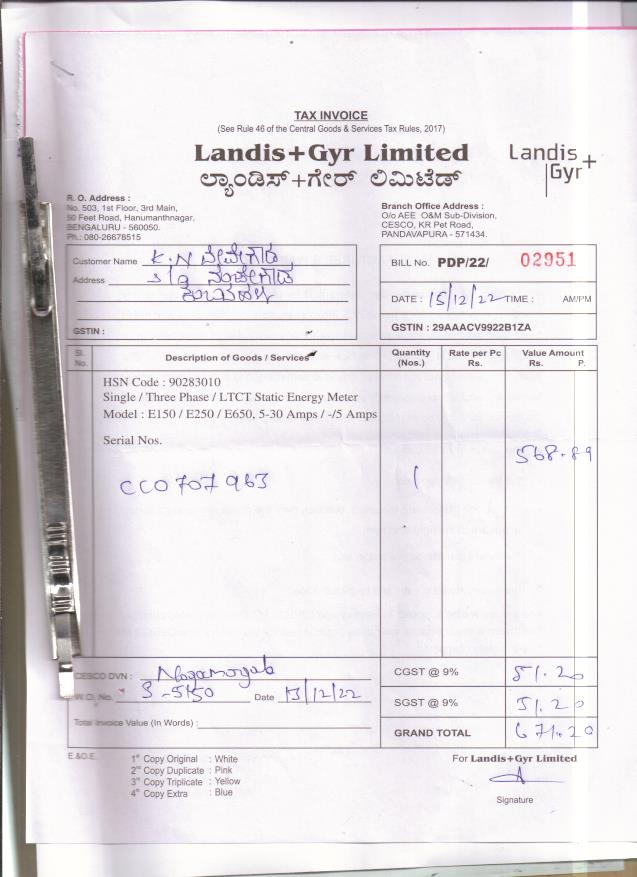 TAX INVOICE
(See Rule 46 of the Central Goods & Services Tax Rules, 2017)
Landis+Gyr Limited
ಲ್ಯಾಂಡಿಸ್+ಗೇರ್ ಲಿಮಿಟೆಡ್
Landis+
Gyr
R. O. Address :
No. 503, 1st Floor, 3rd Main,
50 Feet Road, Hanumanthnagar,
BENGALURU - 560050.
Ph.: 080-26678515
Branch Office Address :
O/o AEE O&M Sub-Division,
CESCO, KR Pet Road,
PANDAVAPURA - 571434.
Customer Name K.N ದೇವೇಗೌಡ
Address S/o ನಂಜೇಗೌಡ
GSTIN :
BILL No. PDP/22/ 02951
DATE : 15/12/22 TIME : AM/PM
GSTIN : 29AAACV9922B1ZA
Sl. No. Description of Goods / Services Quantity (Nos.) Rate per Pc Rs. Value Amount Rs. P.
HSN Code : 90283010
Single / Three Phase / LTCT Static Energy Meter
Model : E150 / E250 / E650, 5-30 Amps / -/5 Amps
Serial Nos.
568.89
CC0707963 1
CESCO DVN : Nagamangala
W.O. No. S-5150 Date 13/12/22
Total Invoice Value (In Words) :
CGST @ 9% 51.20
SGST @ 9% 51.20
GRAND TOTAL 671.20
E.&O.E.
1st Copy Original : White
2nd Copy Duplicate : Pink
3rd Copy Triplicate : Yellow
4th Copy Extra : Blue
For Landis+Gyr Limited
Signature